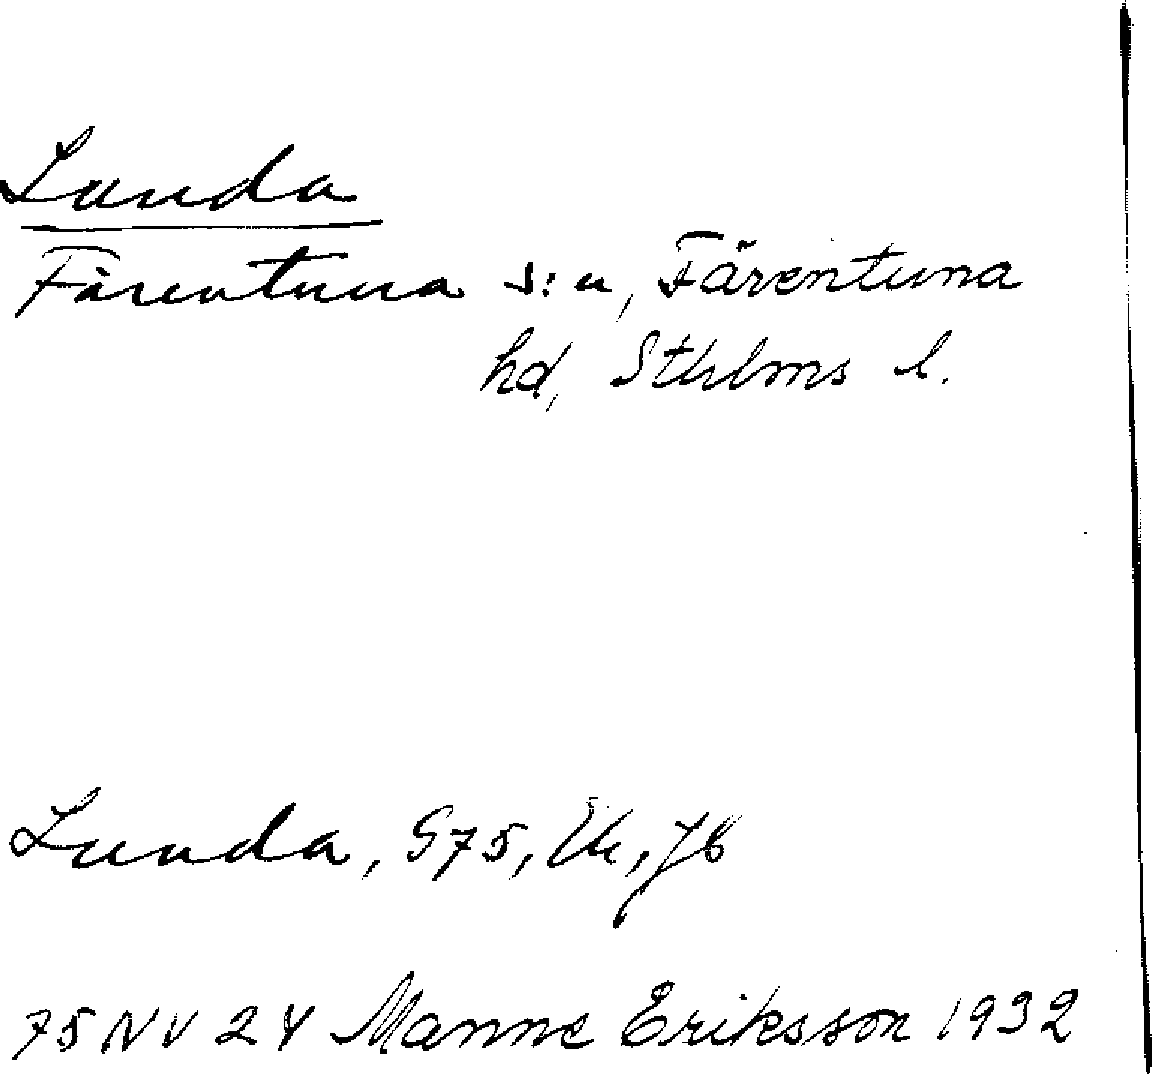 Lunda
Färentuna s:n, Färentuna
hd, Sthlms l.
Lunda, S75, Ek, Jb
75 NV 24 Manne Eriksson 1932